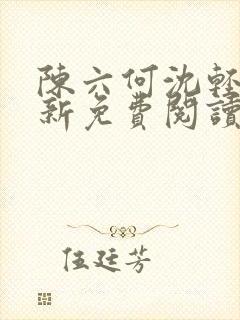 陳六何沈輕
新免費閱讀
伍廷芳